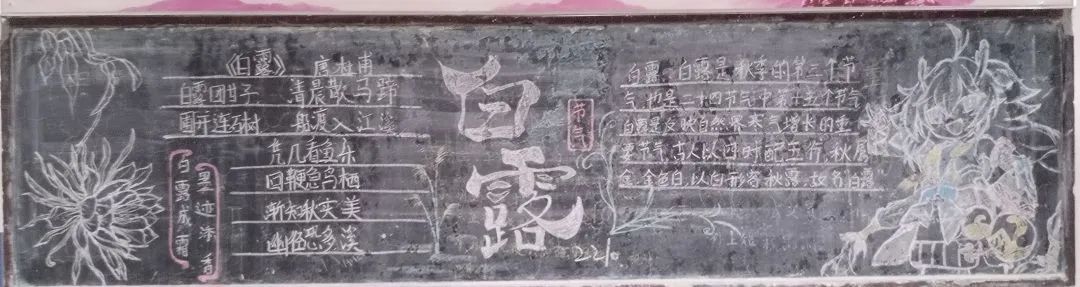 《白露》 唐杜甫
白露团甘子 清晨散马蹄
圃开连石树 船渡入江溪
凭几看鱼乐
回鞭急鸟栖
渐知秋实美
幽径恐多溪
白露成霜
墨迹添香
白露
节气
221
白露：白露是秋季的第三个节
气，也是二十四节气中第十五个节气
白露是反映自然界寒气增长的重
要节气，古人以四时配五行，秋属
金，金色白，以白形容秋露，故名白露